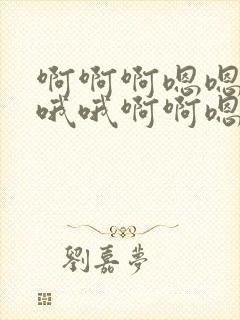 啊啊啊嗯嗯
哦哦啊啊嗯
劉嘉夢